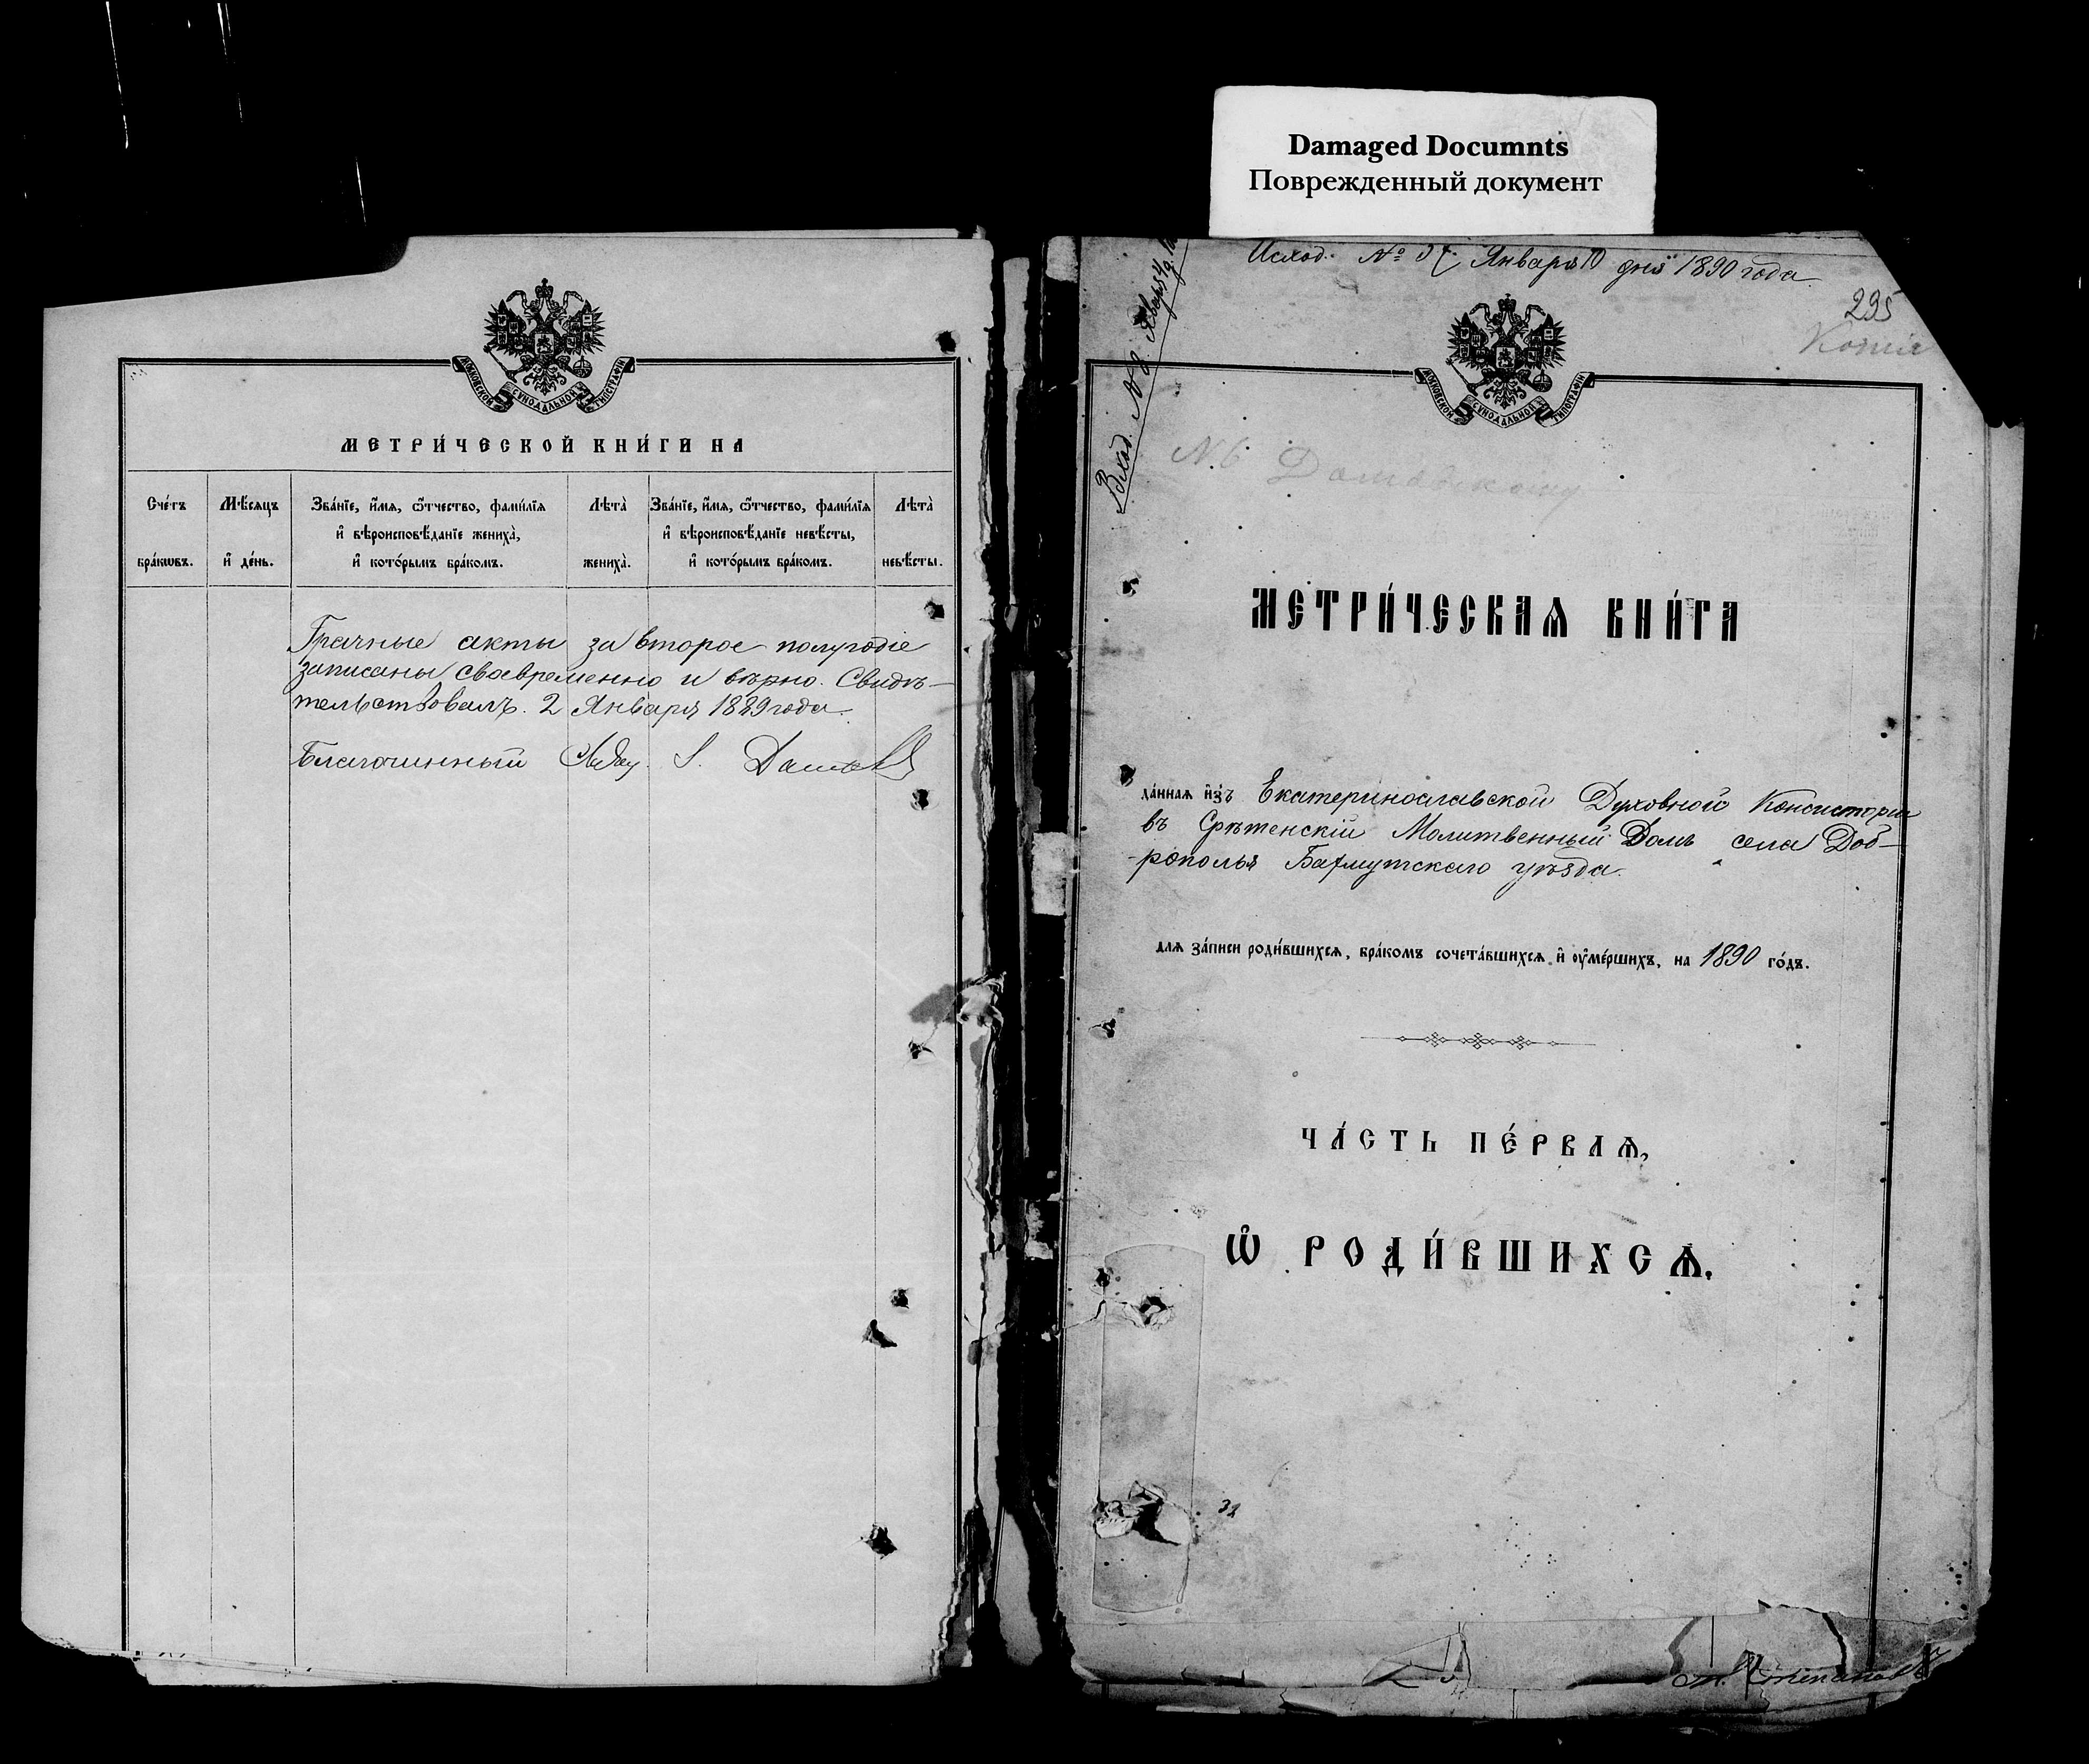 Damaged Documnts
Поврежденный документ
МОСКОВСКОЙ СѴНОДАЛЬНОЙ ТИПОГРАФІИ
МЕТРИ́ЧЕСКОЙ КНИ́ГИ НА
Сче́тъ бра́кѡвъ.
Мѣ́сяцъ и҆ де́нь.
Зва́нїе, и҆́мѧ, ѻ҆́тчество, фами́лїѧ
и҆ вѣроисповѣ́данїе жениха̀,
и҆ кото́рымъ бра́комъ.
Лѣта̀ жениха̀.
Зва́нїе, и҆́мѧ, ѻ҆́тчество, фами́лїѧ
и҆ вѣроисповѣ́данїе невѣ́сты,
и҆ кото́рымъ бра́комъ.
Лѣта̀ невѣ́сты.
акты за второе полугодіе
записаны своевременно и вѣрно. Свидѣ-
тельствовалъ. 2 Января 1889 года.
Благочинный
Исход. № Января 10 дня 1890 года.
295
Копія
Вход. №
МОСКОВСКОЙ СѴНОДАЛЬНОЙ ТИПОГРАФІИ
№ 6
МЕТРИ́ЧЕСКАѦ КНИ́ГА
да́ннаѧ и҆зъ Екатеринославской Духовной Консисторіи
въ Срѣтенскій Молитвенный Домъ села Доб-
рополья Бахмутскаго уѣзда.
длѧ за́писи роди́вшихсѧ, бра́комъ сочета́вшихсѧ и҆ ᲂу҆ме́ршихъ, на 1890 го́дъ.
ЧА́СТЬ ПЕ́РВАѦ,
Ѡ҆ РОДИ́ВШИХСѦ.
32